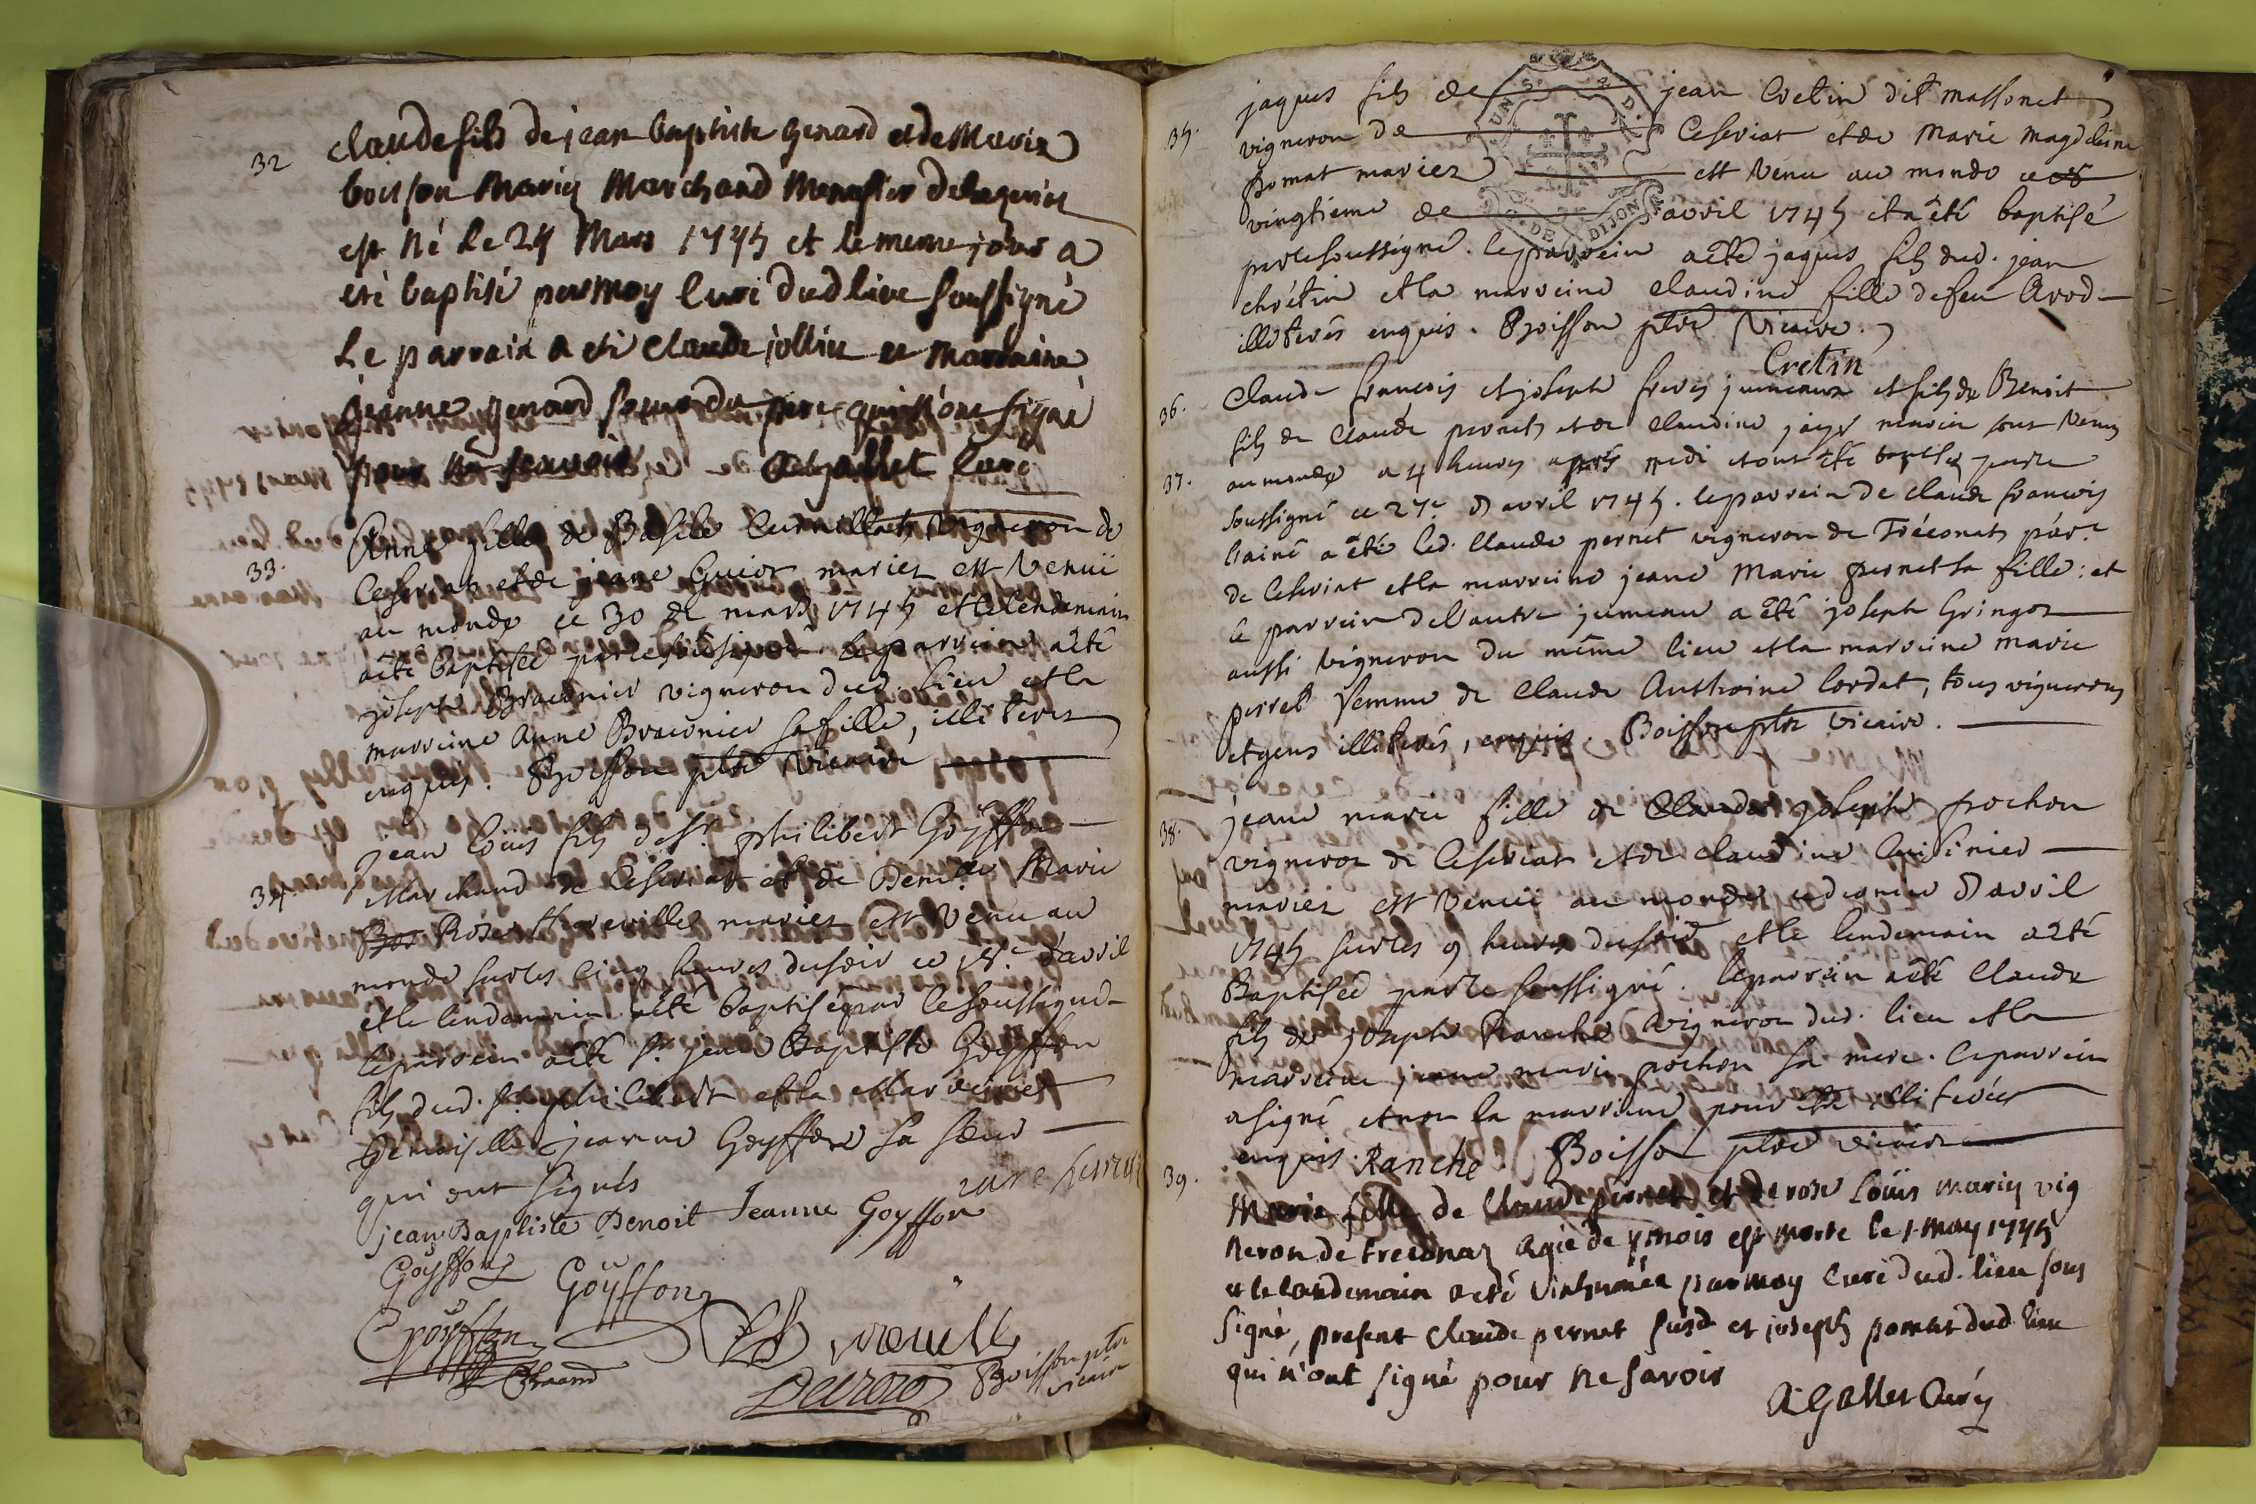 32
claude fils de jean baptiste genard et de Marie
boisson Mariez Marchand
est Né le 24 Mars 1745 et le meme jour a
eté baptisé par moy Curé dud lieu soussigné
Le parrain a eté claude jollin et marraine
jeanne genard soeur du pere qui n'ont signé
pour ne scavoir Curé
33.
Anne fille de Basile vigneron de
Ceseriat et de jeane Guiot mariez est venuë
au monde ce 30 de mars 1745 et le lendemain
a été baptisée par le soussigné le parrein a été
joseph Braconier vigneron dud. lieu et la
marreine Anne Braconier sa fille, illiterez
enquis. Boisson ptre vicaire
34.
jean loüis fils de Sr. philibert Goÿffon
Marchand de Ceseriat et de Demlle Marie
Rose mariez est venu au
monde sur les cinq heures du soir ce d'avril
et le lendemain a été baptisé par le soussigné
le parrein a été Sr. jean Baptiste Goÿffon
fils dud. Sr. philibert et la Marreine
Demoiselle jeanne Goyffon sa soeur
qui ont signés
jean Baptiste Benoit Jeanne Goyffon
Goÿffon Goÿffon
Goÿffon
Decroso Boisson ptre
vicaire
35.
jaques fils de jean Cretin dit massonet
vigneron de Ceseriat et de Marie Magdeleine
pomat mariez est venu au monde ce
vingtieme de avril 1745 et a été baptisé
par le soussigné. le parrein a été jaques fils dud. jean
chrétin et la marreine claudine fille de feu
illiterés enquis. Boisson ptre vicaire.
Cretin
36.
Claude francois et joseph freres jumeaux et fils de Benoit
fils de Claude pernet et de claudine mariez sont venus
37.
au monde a 4 heures après midi et ont été baptisés par le
soussigné ce 27e d'avril 1745. le parrein de claude francois
l'ainé a été led. Claude pernet vigneron de Tréconats par.e
de Ceseriat et la marreine jeane Marie pernet sa fille: et
le parrein de l'autre jumeau a été joseph Gringoz
aussi vigneron du même lieu et la marreine marie
perret femme de Claude Anthoine Cordat, tous vignerons
et gens illiterés, enquis. Boisson ptre vicaire.
38.
jeane marie fille de Claude joseph pochon
vigneron de Ceseriat et de claudine Cuisinier
mariez est venuë au monde d'avril
1745 sur les 9 heures du soir et le lendemain a été
Baptisée par le soussigné. le parrein a été Claude
fils de joseph Ranche vigneron dud. lieu et la
marreine jeane marie pochon sa mere. le parrein
a signé et non la marreine pour être illiterée
enquis. Ranche Boisson ptre vicaire
39.
Marie fille de Claude pernet et de rose Loüis mariez vig
neron de treconaz agée de mois est morte le 1 may 1745
et le landemain a eté inhumée par moy Curé dud. lieu sous
signé, present claude pernet susd et joseph pomat dud lieu
qui n'ont signé pour ne savoir
Curé